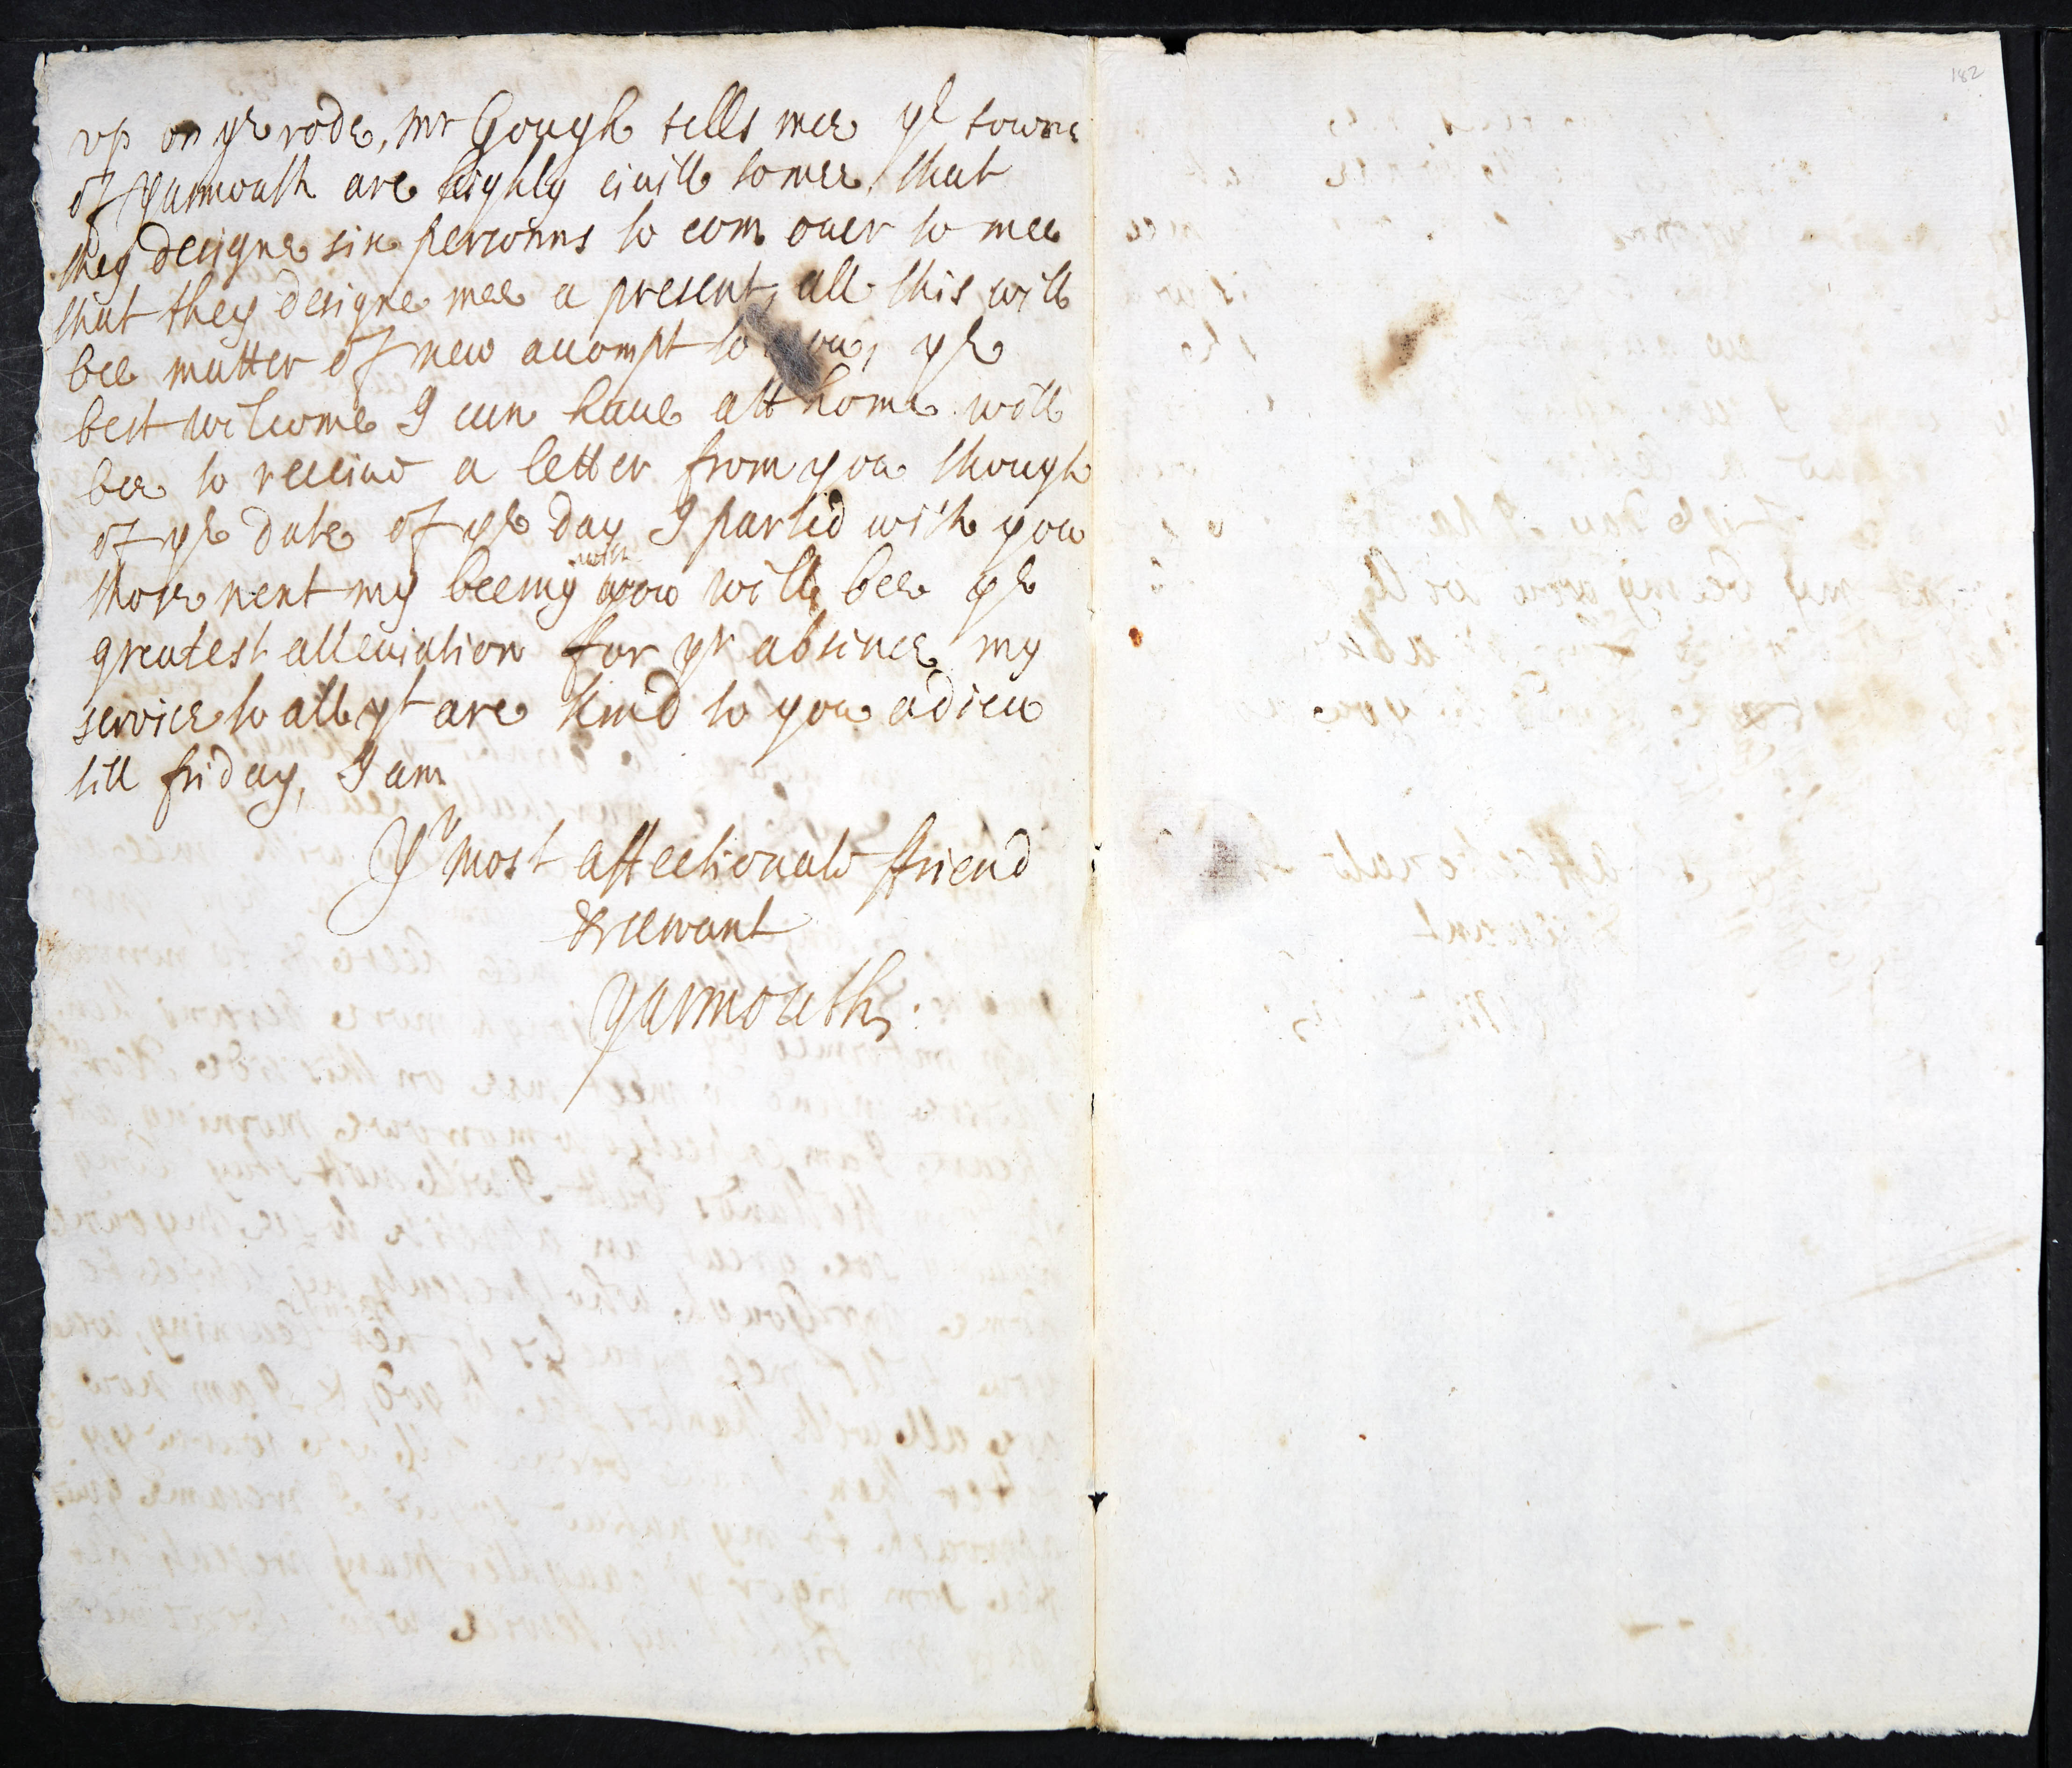 vp on ye rode, mr Gough tells mee ye towne
of Yarmouth are highly ciuill to mee, that
they designe six personns to com ouer to mee
that they designe mee a present, all this will
bee matter of new acompt to you, ye
best wilcome I can haue att home will
bee to receiue a letter from you though
of ye date of ye day I parted with you
those next my beeing with you will bee ye
greatest alleuiation for yr absence my
service to all yt are kind to you adieu
till friday, I am
Yr most affectionate ffriend
& servant
Yarmouth.
182